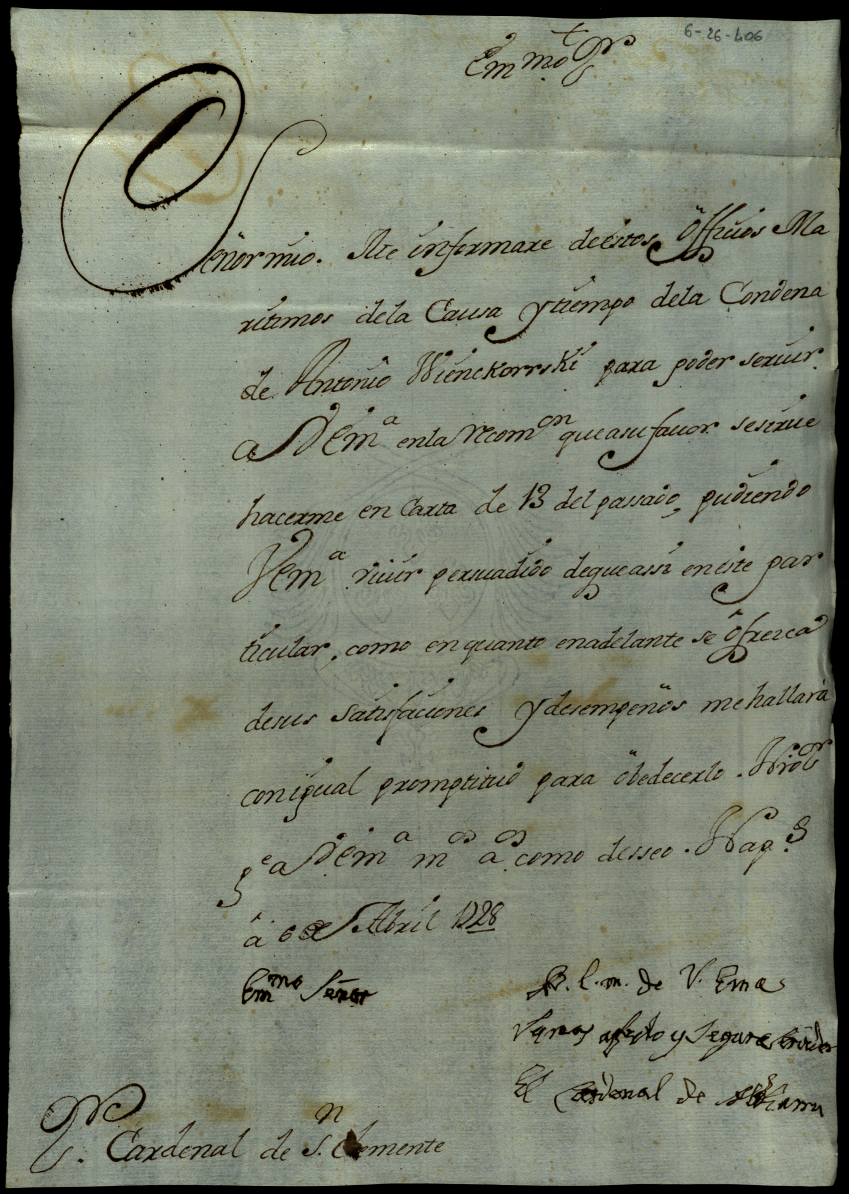 6-26-406
†
Emmo. Sr
Señor mio. Me informare de estos Offiuios Ma
ritimos dela Causa y tiempo dela Condena
de Antonio Wienckorrski para poder seruir.
a VEma en la recomon que asu fauor se sirue
hacerme en Carta de 13 del passado, pudiendo
VEma viuir persuadido de que assi en este par
ticular, como en quanto en adelante se ofrezca
de sus satisfaciones y desempeños me hallarà
con igual promptitud para obedecerlo. Nro Sr
ge a VEma ms as como desseo. Nap.s
à 6 de Abril 1728
Emmo Señor
B. l. m. de V. Ema
su mas afecto y Seguro Seruidor
El Cardenal de
Sr. Cardenal de Sn. Clemente